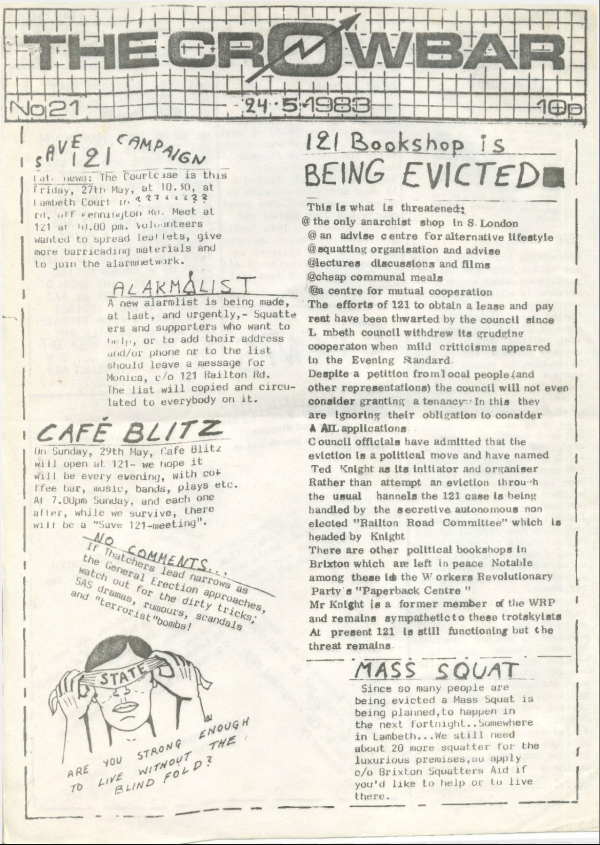 THE CROWBAR
No 21
24·5·1983
10p
SAVE 121 CAMPAIGN
news: The Courtcase is this
Friday, 27th May, at 10.30, at
Lambeth Court in
rd, off Kennington Rd. Meet at
121 at 10.00 pm. Volunteers
wanted to spread leaflets, give
more barricading materials and
to join the alarmnetwork.
ALARMLIST
A new alarmlist is being made,
at last, and urgently,- Squatt
ers and supporters who want to
help, or to add their address
and/or phone nr to the list
should leave a message for
Monica, c/o 121 Railton Rd.
The list will copied and circu-
lated to everybody on it.
CAFÉ BLITZ
On Sunday, 29th May, Cafe Blitz
will open at 121- we hope it
will be every evening, with cof
ffee bar, music, bands, plays etc.
At 7.00pm Sunday, and each one
after, while we survive, there
will be a "Save 121-meeting".
NO COMMENTS...
If Thatchers lead narrows as
the General Erection approaches,
watch out for the dirty tricks;
SAS dramas, rumours, scandals
and "terrorist"bombs!
STATE
ARE YOU STRONG ENOUGH
TO LIVE WITHOUT THE
BLIND FOLD?
121 Bookshop is
BEING EVICTED
This is what is threatened;
@ the only anarchist shop in S. London
@ an advise centre for alternative lifestyle
@ squatting organisation and advise
@lectures discussions and films
@cheap communal meals
@a centre for mutual cooperation
The efforts of 121 to obtain a lease and pay
rent have been thwarted by the council since
L mbeth council withdrew its grudging
cooperaton when mild criticisms appeared
in the Evening Standard.
Despite a petition from local people (and
other representations) the council will not even
consider granting a tenancy. In this they
are ignoring their obligation to consider
A AlL applications
Council officials have admitted that the
eviction is a political move and have named
Ted Knight as its initiator and organiser
Rather than attempt an eviction through
the usual hannels the 121 case is being
handled by the secretive autonomous non
elected "Railton Road Committee" which is
headed by Knight
There are other political bookshops in
Brixton which are left in peace Notable
among these is the W orkers Revolutionary
Party's "Paperback Centre "
Mr Knight is a former member of the WRP
and remains sympathetic to these trotskyists
At present 121 is still functioning but the
threat remains
MASS SQUAT
Since so many people are
being evicted a Mass Squat is
being planned,to happen in
the next fortnight..Somewhere
in Lambeth...We still need
about 20 more squatter for the
luxurious premises,so apply
c/o Brixton Squatters Aid if
you'd like to help or to live
there.